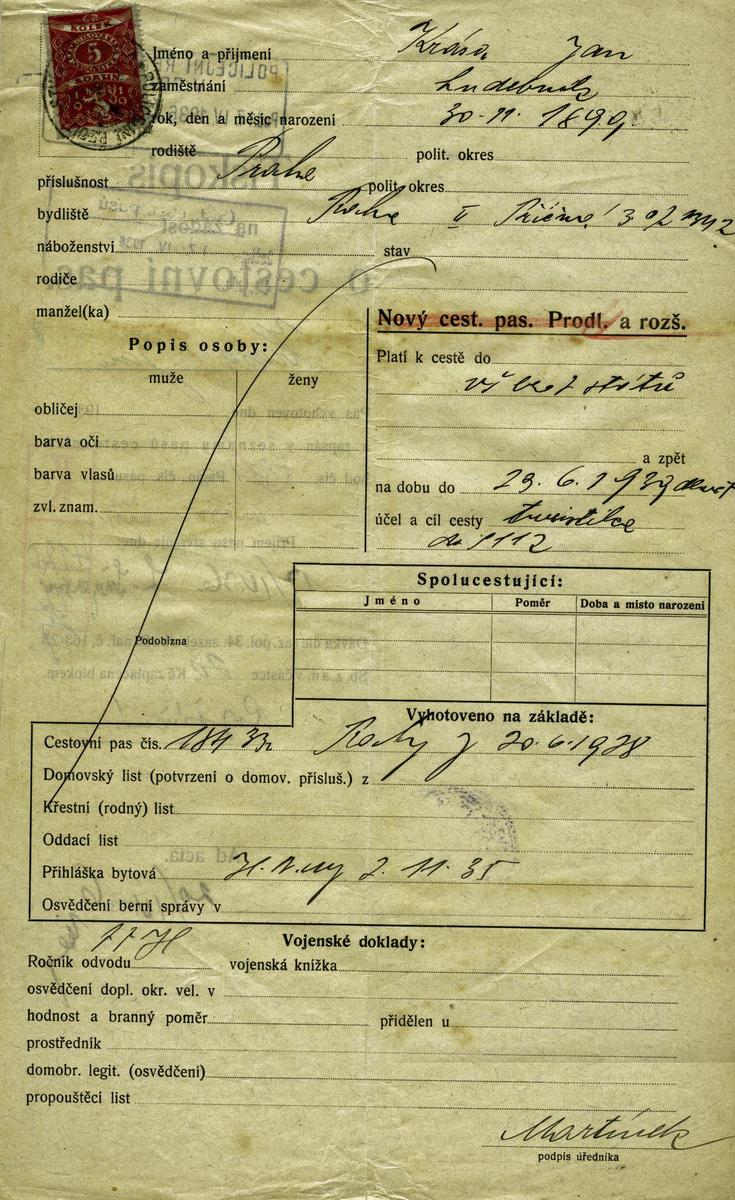 KOLEK
5
KORUN
Jméno a příjmení Krása Jan
zaměstnání
rok, den a měsíc narození 30. 11. 1899
rodiště Praha polit. okres
příslušnost polit. okres
bydliště Praha II
náboženství stav
rodiče
manžel(ka)
Nový cest. pas. Prodl. a rozš.
Popis osoby:
muže ženy
obličej
barva očí
barva vlasů
zvl. znam.
Podobizna
Platí k cestě do
států
a zpět
na dobu do 23. 6. 1939
účel a cíl cesty turistika
Spolucestující:
Jméno Poměr Doba a místo narození
Vyhotoveno na základě:
Cestovní pas čís. 20. 6. 1928
Domovský list (potvrzení o domov. přísluš.) z
Křestní (rodný) list
Oddací list
Přihláška bytová 2. 11. 35
Osvědčení berní správy v
Vojenské doklady:
Ročník odvodu vojenská knížka
osvědčení dopl. okr. vel. v
hodnost a branný poměr přidělen u
prostředník
domobr. legit. (osvědčení)
propouštěcí list
Martínek
podpis úředníka